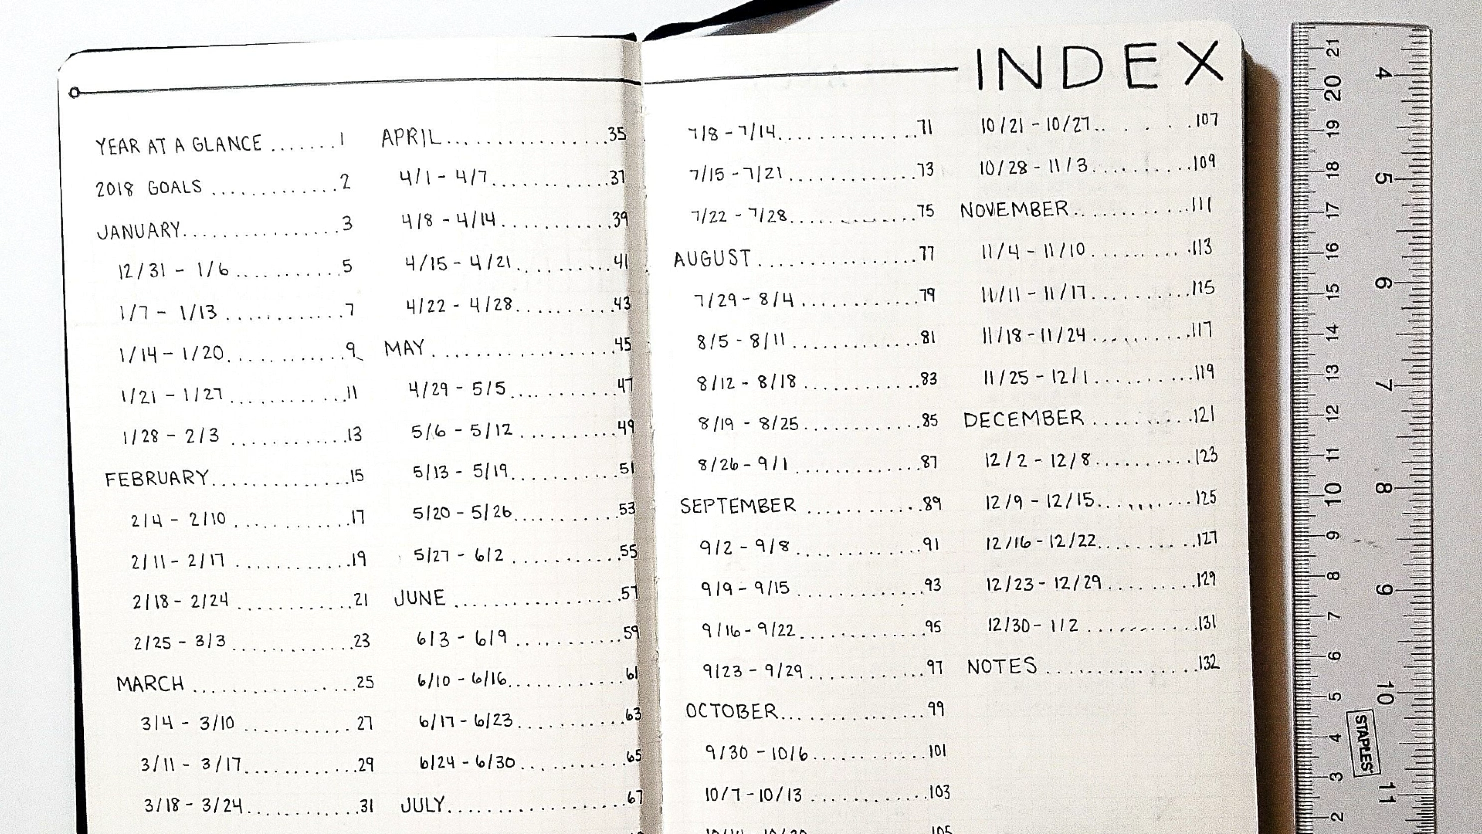 INDEX
YEAR AT A GLANCE .......1
2018 GOALS ............2
JANUARY..............3
12/31 - 1/6...........5
1/7 - 1/13............7
1/14 - 1/20...........9
1/21 - 1/27...........11
1/28 - 2/3 ...........13
FEBRUARY.............15
2/4 - 2/10 ...........17
2/11 - 2/17 ..........19
2/18 - 2/24 ..........21
2/25 - 3/3 ...........23
MARCH ...............25
3/4 - 3/10 ..........27
3/11 - 3/17..........29
3/18 - 3/24..........31
APRIL................35
4/1 - 4/7............37
4/8 - 4/14...........39
4/15 - 4/21..........41
4/22 - 4/28..........43
MAY..................45
4/29 - 5/5...........47
5/6 - 5/12...........49
5/13 - 5/19..........51
5/20 - 5/26..........53
5/27 - 6/2...........55
JUNE ................57
6/3 - 6/9............59
6/10 - 6/16..........61
6/17 - 6/23..........63
6/24 - 6/30..........65
JULY.................67
7/8 - 7/14...........71
7/15 - 7/21..........73
7/22 - 7/28..........75
AUGUST...............77
7/29 - 8/4...........79
8/5 - 8/11...........81
8/12 - 8/18..........83
8/19 - 8/25..........85
8/26 - 9/1...........87
SEPTEMBER ...........89
9/2 - 9/8............91
9/9 - 9/15...........93
9/16 - 9/22..........95
9/23 - 9/29..........97
OCTOBER..............99
9/30 - 10/6..........101
10/7 - 10/13.........103
105
10/21 - 10/27.. . . . .107
10/28 - 11/3.........109
NOVEMBER.............111
11/4 - 11/10.........113
11/11 - 11/17........115
11/18 - 11/24........117
11/25 - 12/1.........119
DECEMBER.............121
12/2 - 12/8..........123
12/9 - 12/15.........125
12/16 - 12/22........127
12/23 - 12/29........129
12/30 - 1/2 .........131
NOTES ...............132
21 20 19 18 17 16 15 14 13 12 11 10 9 8 7 6 5 4 3 2
4 5 6 7 8 9 10 11
STAPLES